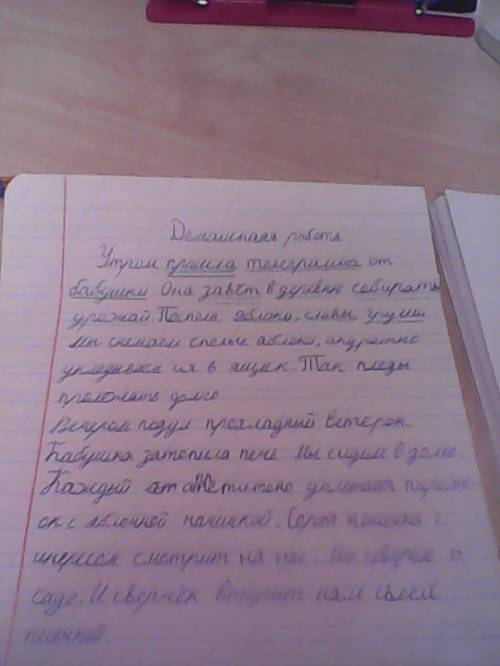 Домашняя работа
Утром пришла телеграмма от
бабушки. Она завёт в деревню собирать
урожай. Поспели яблоки, сливы, груши.
Мы снимаем спелые яблоки, аккуратно
укладываем их в ящик. Так плоды
пролежать долго.
Вечером подул прохладный ветерок.
Бабушка затопила печь. Мы сидим в доме.
Каждый аппетитно уплетает пирож
ок с яблочной начинкой. Серая кошка с
интересом смотрит на нас. Мы говорим о
саде. И сверчёк вторит нам своей
песенкой.